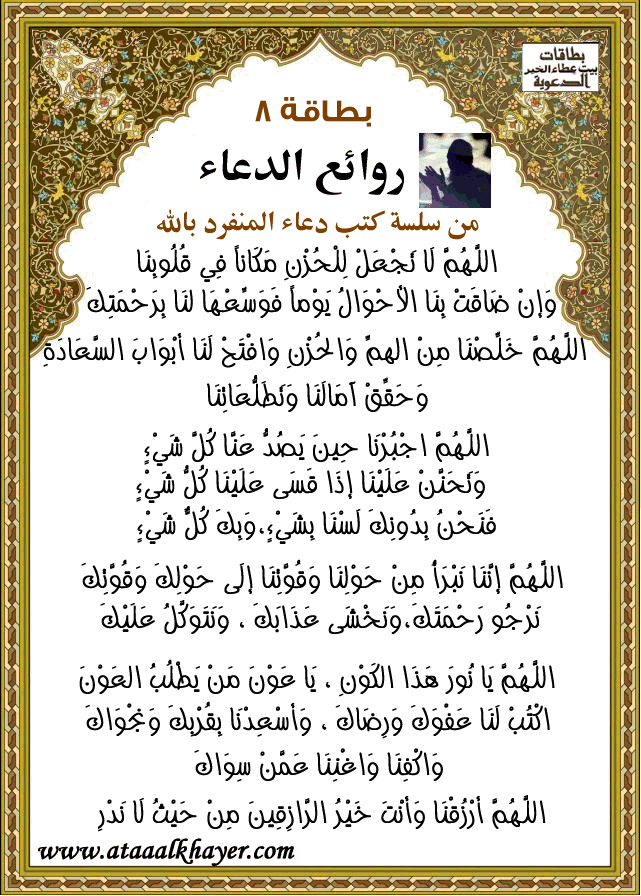 بطاقات
بيت عطاء الخير
الدعوية
بطاقة ٨
روائع الدعاء
من سلسة كتب دعاء المنفرد بالله
اللَّهُمَّ لَا تَجْعَلْ لِلْحُزْنِ مَكَاناً فِي قُلُوبِنَا
وَإنْ ضَاقَتْ بِنَا الأحْوَالُ يَوْماً فَوَسِّعْهَا لنَا بِرَحْمَتِكَ
اللَّهُمَّ خَلِّصْنَا مِنْ الهمِّ وَالحُزْنِ وَافْتَحْ لَنَا أبْوَابَ السَّعَادَةِ
وَحَقِّقْ آمَالَنَا وَتَطَلُّعَاتِنَا
اللَّهُمَّ اجْبُرْنَا حِينَ يَصُدُّ عَنَّا كُلَّ شَيْءٍ
وَتَحَنَّنْ عَلَيْنَا إذَا قَسَى عَلَيْنَا كُلُّ شَيْءٍ
فَنَحْنُ بِدُونِكَ لَسْنَا بِشَيْءٍ،وَبِكَ كُلُّ شَيْءٍ
اللَّهُمَّ إنَّنَا نَبْرَأُ مِنْ حَوْلِنَا وَقُوَّتِنَا إلَى حَوْلِكَ وَقُوَّتِكَ
نَرْجُو رَحْمَتَكَ،وَنَخْشَى عَذَابَكَ ، وَنَتَوَكَّلُ عَلَيْكَ
اللَّهُمَّ يَا نُورَ هَذَا الكَوْنِ ، يَا عَوْنَ مَنْ يَطْلُبُ العَوْنَ
اكْتُبْ لَنَا عَفْوَكَ وَرِضَاكَ ، وَأسْعِدْنَا بِقُرْبِكَ وَنَجْوَاكَ
وَاكْفِنَا وَاغْنِنَا عَمَّنْ سِوَاكَ
اللَّهُمَّ أرْزُقْنَا وَأنْتَ خَيْرُ الرَّازِقِينَ مِنْ حَيْثُ لَا نَدْرِ
www.ataaalkhayer.com